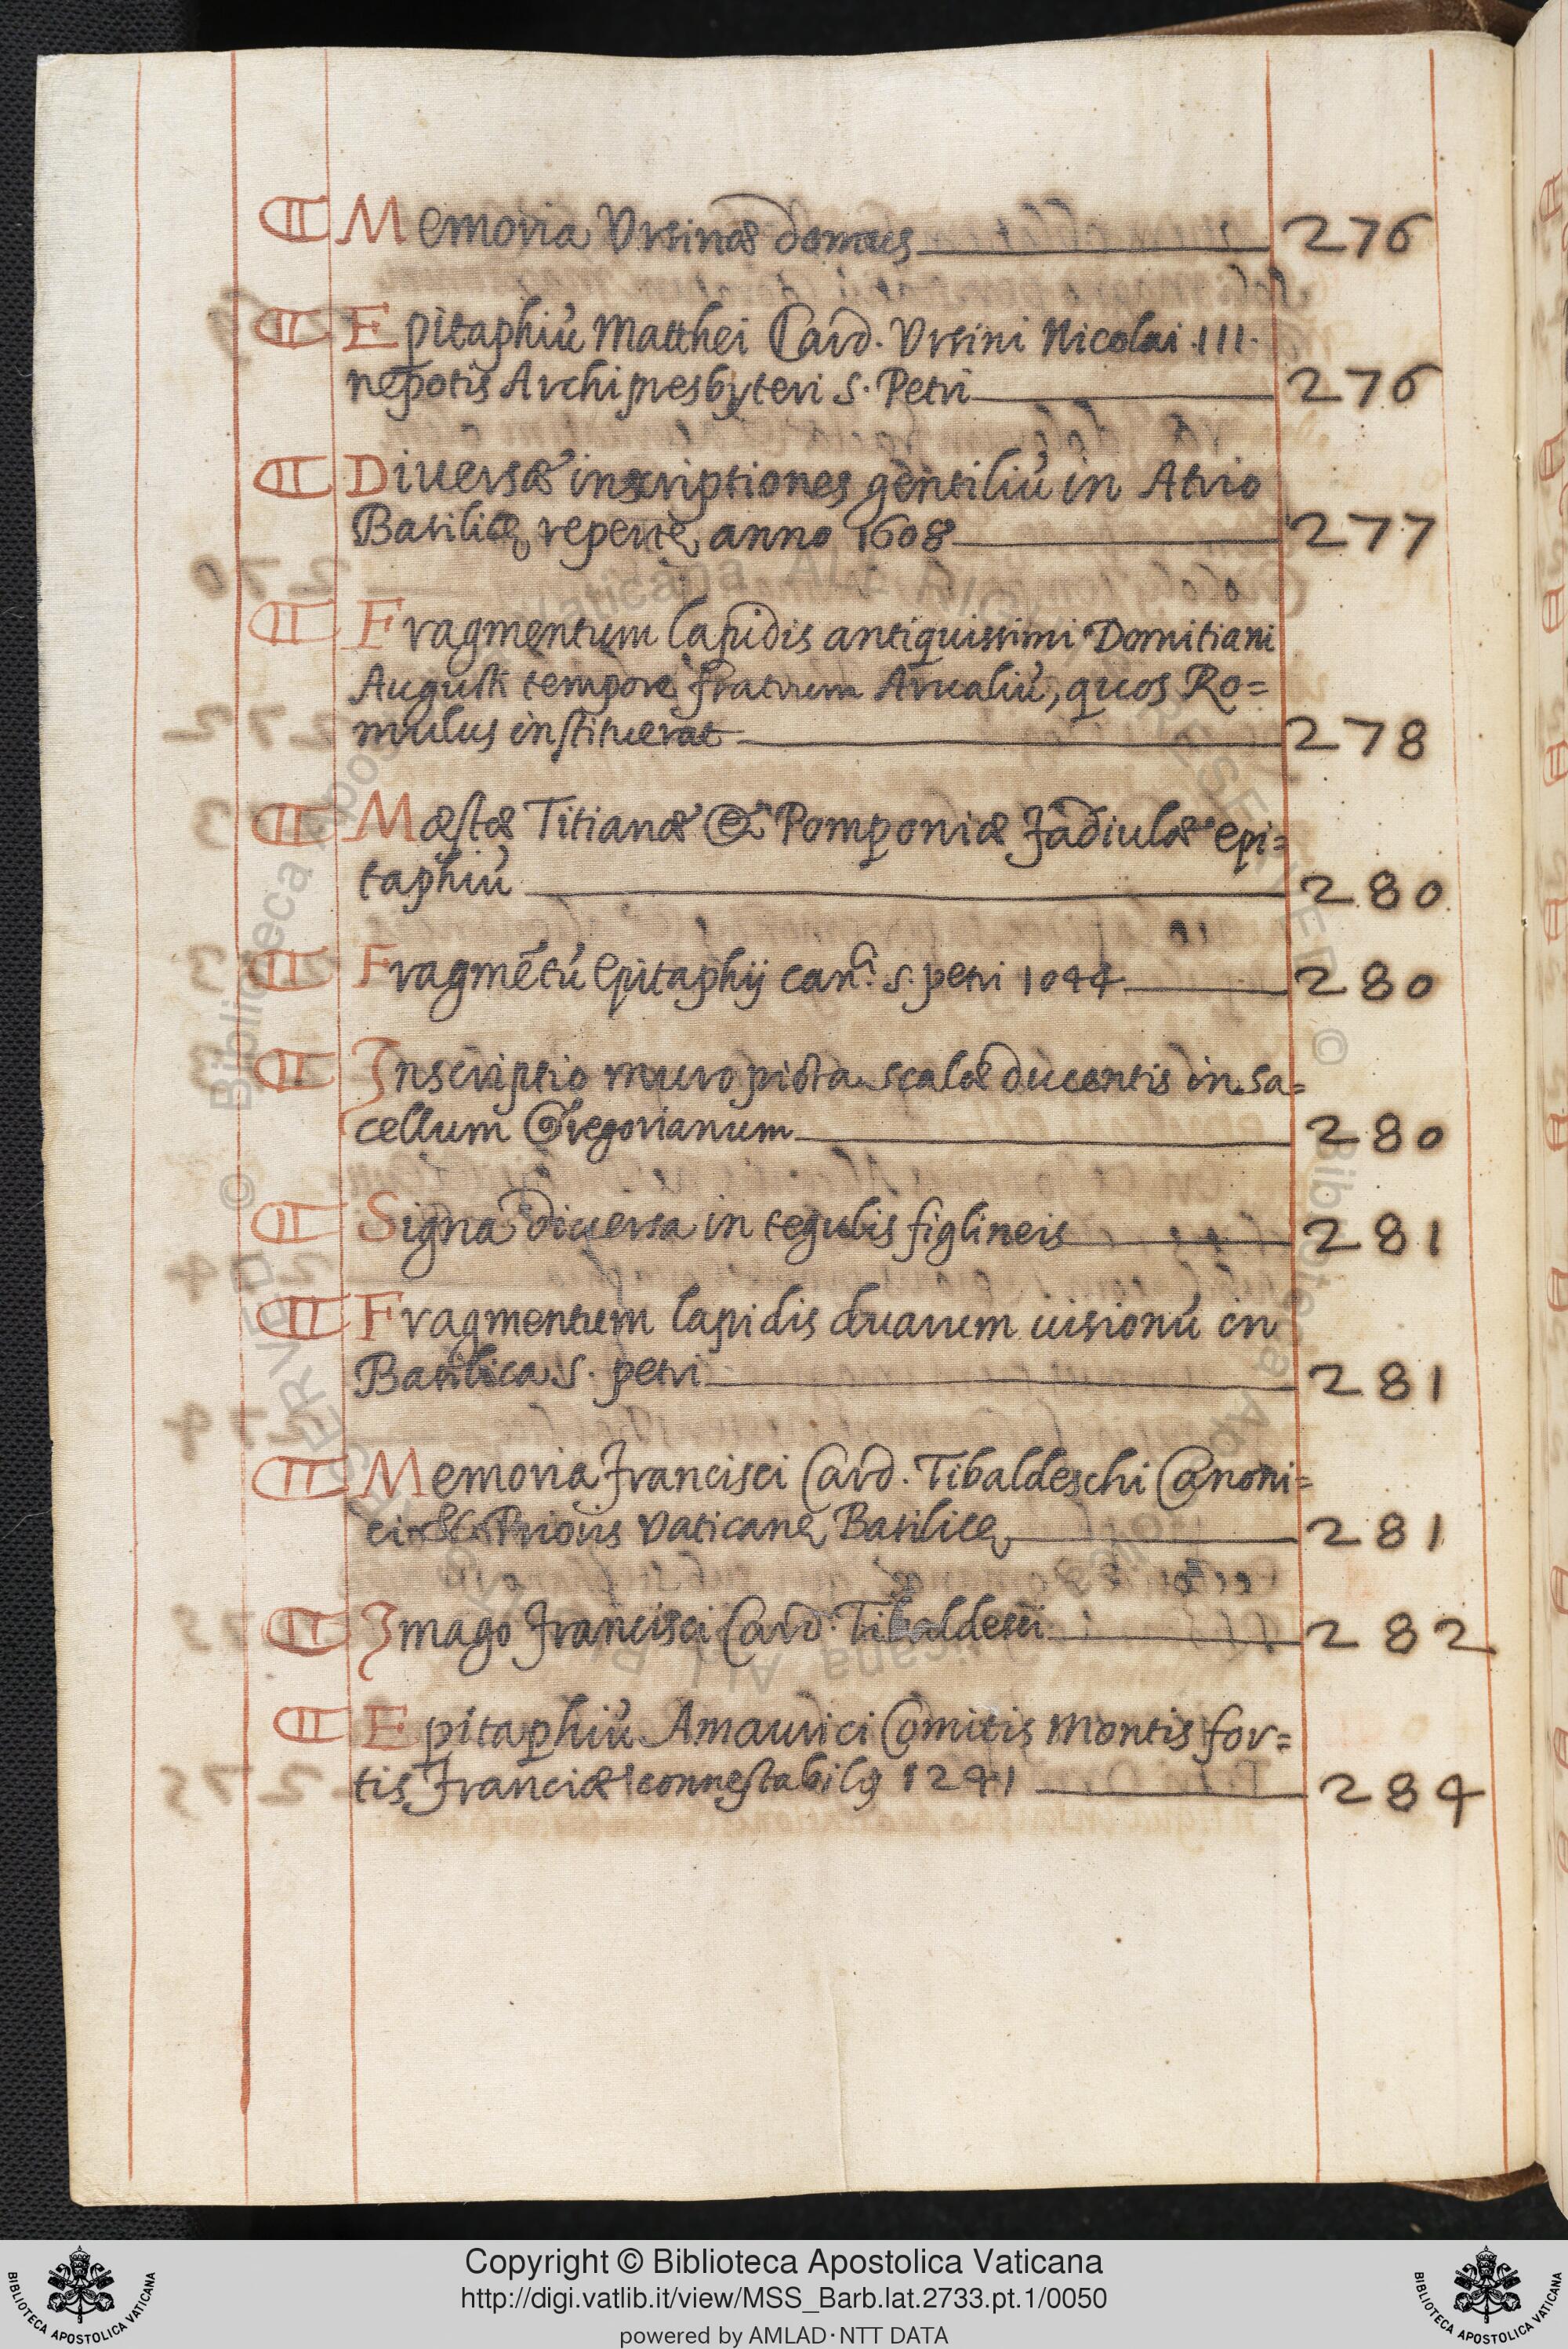 ¶ Memoria Vrsinæ domus 276
¶ Epitaphiū Matthei Card. Vrsini Nicolai .III.
nepotis Archipresbyteri S. Petri 276
¶ Diuersæ inscriptiones gentiliū in Atrio
Basilicę repertę anno 1608 277
¶ Fragmentum lapidis antiquissimi Domitiani
Augusti tempore fratrum Arualiū, quos Ro=
mulus instituerat 278
¶ Mæstæ Titianæ & Pomponiæ Fadiulæ epi=
taphiū 280
¶ Fragmētū epitaphij can.ci S. petri 1044 280
¶ Inscriptio muro picta scalæ ducentis in sa=
cellum Gregorianum 280
¶ Signa diuersa in tegulis figlineis 281
¶ Fragmentum lapidis duarum uisionū in
Basilica S. petri 281
¶ Memoria Francisci Card. Tibaldeschi Canoni=
ci & Prioris Vaticanę Basilicę 281
¶ Imago Francisci Card. Tibaldesci 282
¶ Epitaphiū Amaurici Comitis Montis for=
tis Franciæ connestabilis 1241 284
Copyright © Biblioteca Apostolica Vaticana
http://digi.vatlib.it/view/MSS_Barb.lat.2733.pt.1/0050
powered by AMLAD·NTT DATA
BIBLIOTECA APOSTOLICA VATICANA
BIBLIOTECA APOSTOLICA VATICANA